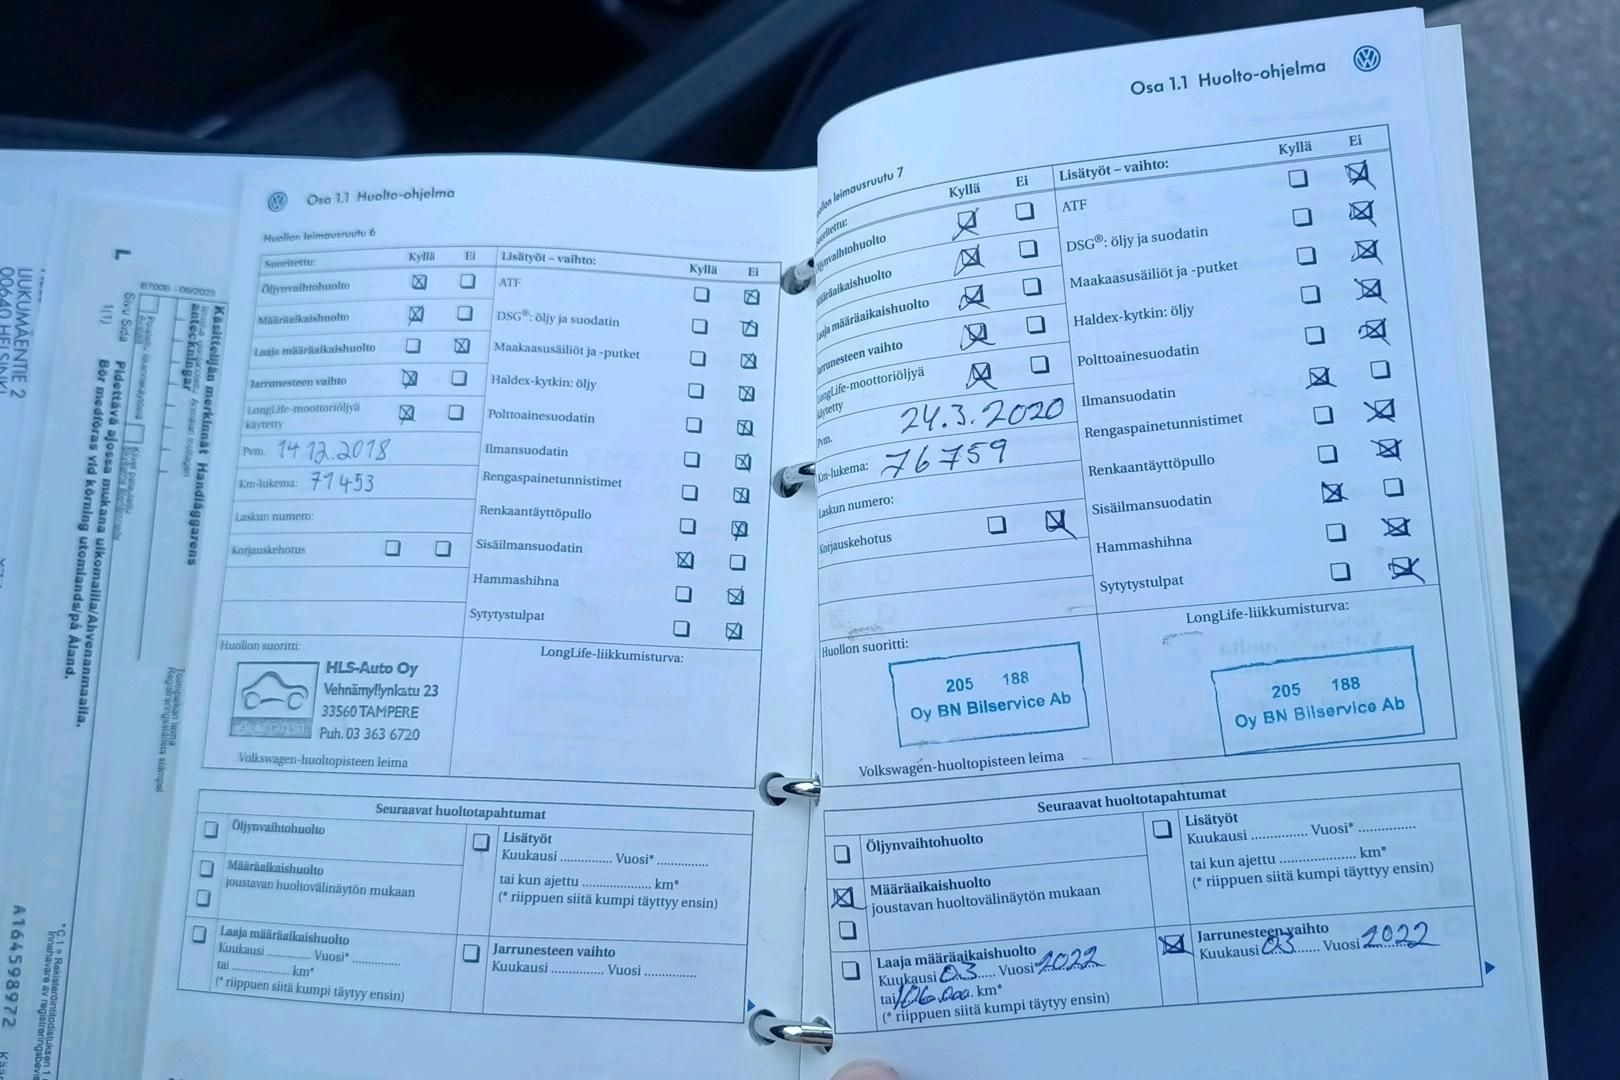 Osa 1.1 Huolto-ohjelma
Huollon leimausruutu 6
Suoritettu: Kyllä Ei
Öljynvaihtohuolto
Määräaikaishuolto
Laaja määräaikaishuolto
Jarrunesteen vaihto
LongLife-moottoriöljyä
käytetty
Pvm. 14.12.2018
Km-lukema: 71453
Laskun numero:
Korjauskehotus
Lisätyöt – vaihto: Kyllä Ei
ATF
DSG®: öljy ja suodatin
Maakaasusäiliöt ja -putket
Haldex-kytkin: öljy
Polttoainesuodatin
Ilmansuodatin
Rengaspainetunnistimet
Renkaantäyttöpullo
Sisäilmansuodatin
Hammashihna
Sytytystulpat
Huollon suoritti:
HLS-Auto Oy
Vehnämyllynkatu 23
33560 TAMPERE
Puh. 03 363 6720
AUTOASI
Volkswagen-huoltopisteen leima
LongLife-liikkumisturva:
Seuraavat huoltotapahtumat
Öljynvaihtohuolto
Määräaikaishuolto
joustavan huoltovälinäytön mukaan
Laaja määräaikaishuolto
Kuukausi ............ Vuosi* ............
tai ............ km*
(* riippuen siitä kumpi täytyy ensin)
Lisätyöt
Kuukausi ............ Vuosi* ............
tai kun ajettu ............ km*
(* riippuen siitä kumpi täyttyy ensin)
Jarrunesteen vaihto
Kuukausi ............ Vuosi ............
Osa 1.1 Huolto-ohjelma
leimausruutu 7
Kyllä Ei
Öljynvaihtohuolto
Määräaikaishuolto
Laaja määräaikaishuolto
Jarrunesteen vaihto
LongLife-moottoriöljyä
käytetty
Pvm. 24.3.2020
Km-lukema: 76759
Laskun numero:
Korjauskehotus
Lisätyöt – vaihto: Kyllä Ei
ATF
DSG®: öljy ja suodatin
Maakaasusäiliöt ja -putket
Haldex-kytkin: öljy
Polttoainesuodatin
Ilmansuodatin
Rengaspainetunnistimet
Renkaantäyttöpullo
Sisäilmansuodatin
Hammashihna
Sytytystulpat
Huollon suoritti:
205 188
Oy BN Bilservice Ab
Volkswagen-huoltopisteen leima
LongLife-liikkumisturva:
205 188
Oy BN Bilservice Ab
Seuraavat huoltotapahtumat
Öljynvaihtohuolto
Määräaikaishuolto
joustavan huoltovälinäytön mukaan
Laaja määräaikaishuolto
Kuukausi 03 Vuosi 2022
tai 106.000 km*
(* riippuen siitä kumpi täyttyy ensin)
Lisätyöt
Kuukausi ............ Vuosi* ............
tai kun ajettu ............ km*
(* riippuen siitä kumpi täyttyy ensin)
Jarrunesteen vaihto
Kuukausi 03 Vuosi 2022
LIUKUMÄENTIE 2
00640 HELSINKI
A164598972
L
B700B - 09/2023
Sivu Sida
1(1)
Käsittelijän merkinnät Handläggarens
anteckningar
Pidettävä ajossa mukana ulkomailla/Ahvenanmaalla.
Bör medföras vid körning utomlands/på Åland.